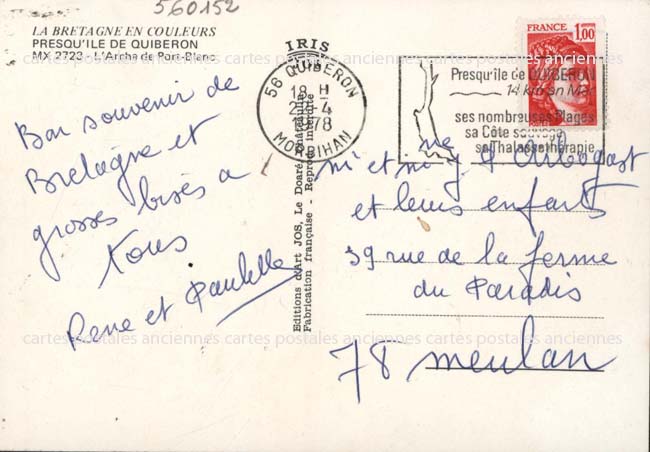 560152
LA BRETAGNE EN COULEURS
PRESQU'ILE DE QUIBERON
MX 2723 - L'Arche de Port-Blanc
IRIS
Bon souvenir de
Bretagne et
grosses bises a
tous
Rene et Paulette
Editions d'Art JOS, Le Doaré, Châteaulin
Fabrication française - Reprod. interdite
56 QUIBERON
18 H
4
1978
MORBIHAN
Presqu'île de QUIBERON
14 km en Mer
ses nombreuses Plages
sa Côte sauvage
sa Thalassothérapie
FRANCE
1,00
mr et me Arbogast
et leurs enfants
39 rue de la ferme
du Paradis
78 meulan
cartes postales anciennes cartes postales anciennes cartes postales anciennes